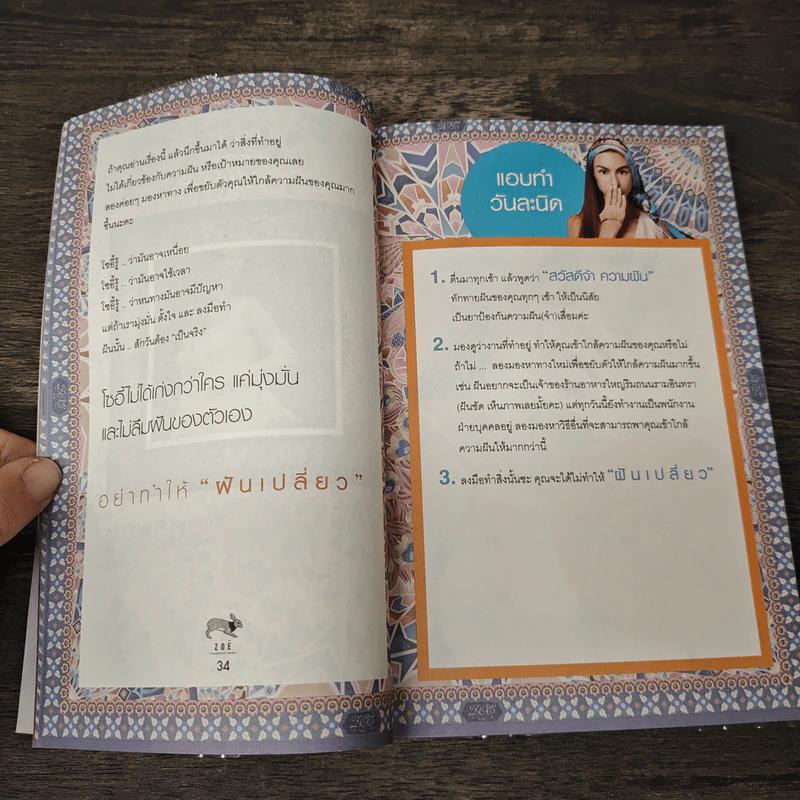 ถ้าคุณอ่านเรื่องนี้ แล้วนึกขึ้นมาได้ ว่าสิ่งที่ทำอยู่
ไม่ได้เกี่ยวข้องกับความฝัน หรือเป้าหมายของคุณเลย
ลองค่อยๆ มองหาทาง เพื่อขยับตัวคุณให้ใกล้ความฝันของคุณมาก
ขึ้นนะคะ
โซอี้รู้ .. ว่ามันอาจเหนื่อย
โซอี้รู้ .. ว่ามันอาจใช้เวลา
โซอี้รู้ .. ว่าหนทางมันอาจมีปัญหา
แต่ถ้าเรามุ่งมั่น ตั้งใจ และ ลงมือทำ
ฝันนั้น .. สักวันต้อง "เป็นจริง"
โซอี้ไม่ได้เก่งกว่าใคร แค่มุ่งมั่น
และไม่ลืมฝันของตัวเอง
อย่าทำให้ "ฝันเปลี่ยว"
ZOÉ
34
แอบทำ
วันละนิด
1. ตื่นมาทุกเช้า แล้วพูดว่า "สวัสดีจ้า ความฝัน"
ทักทายฝันของคุณทุกๆ เช้า ให้เป็นนิสัย
เป็นยาป้องกันความฝัน(จำ)เสื่อมค่ะ
2. มองดูว่างานที่ทำอยู่ ทำให้คุณเข้าใกล้ความฝันของคุณหรือไม่
ถ้าไม่ ... ลองมองหาทางใหม่เพื่อขยับตัวให้ใกล้ความฝันมากขึ้น
เช่น ฝันอยากจะเป็นเจ้าของร้านอาหารใหญ่ริมถนนรามอินทรา
(ฝันชัด เห็นภาพเลยมั้ยคะ) แต่ทุกวันนี้ยังทำงานเป็นพนักงาน
ฝ่ายบุคคลอยู่ ลองมองหาวิธีอื่นที่จะสามารถพาคุณเข้าใกล้
ความฝันให้มากกว่านี้
3. ลงมือทำสิ่งนั้นซะ คุณจะได้ไม่ทำให้ "ฝันเปลี่ยว"